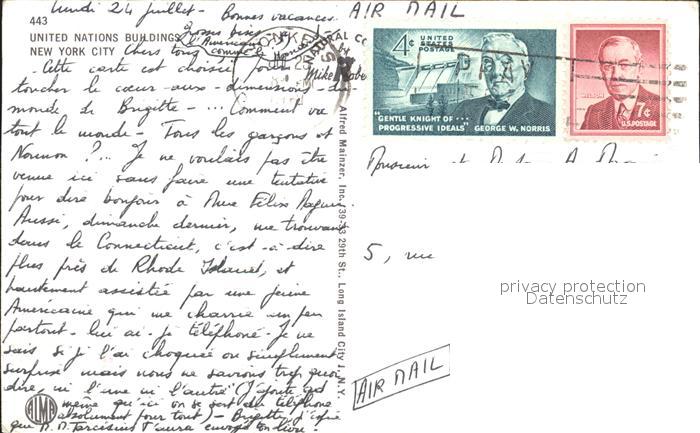 lundi 24 juillet - Bonnes vacances.
443
UNITED NATIONS BUILDINGS
NEW YORK CITY
Chers tous
Grosses bises
à l'Américaine
(comme
Cette carte est choisie pour
toucher le cœur-aux-dimensions-du
monde de Brigitte - ... Comment va
tout le monde - Tous les garçons et
Normon ?... Je ne voulais pas être
venue ici sans faire une tentative
pour dire bonjour à Mme Félix
Aussi, dimanche dernier, me trouvant
dans le Connecticut, c'est-à-dire
plus près de Rhode Island, et
hautement assistée par une jeune
Américaine qui me charrie un peu
partout - lui ai-je téléphoné - Je ne
sais si je l'ai choquée ou simplement
surprise mais nous ne savions trop quoi
dire, ni l'une ni l'autre (J'ajoute
même qu'ici on se sert du téléphone
absolument pour tout) - Brigitte,
que
ALMA
Alfred Mainzer, Inc., 39-33 29th St., Long Island City 1, N.Y.
AIR MAIL
4¢ UNITED STATES POSTAGE
"GENTLE KNIGHT OF...
PROGRESSIVE IDEALS" GEORGE W. NORRIS
WILSON
7¢
U.S. POSTAGE
Monsieur et
5, rue
privacy protection
Datenschutz
AIR MAIL